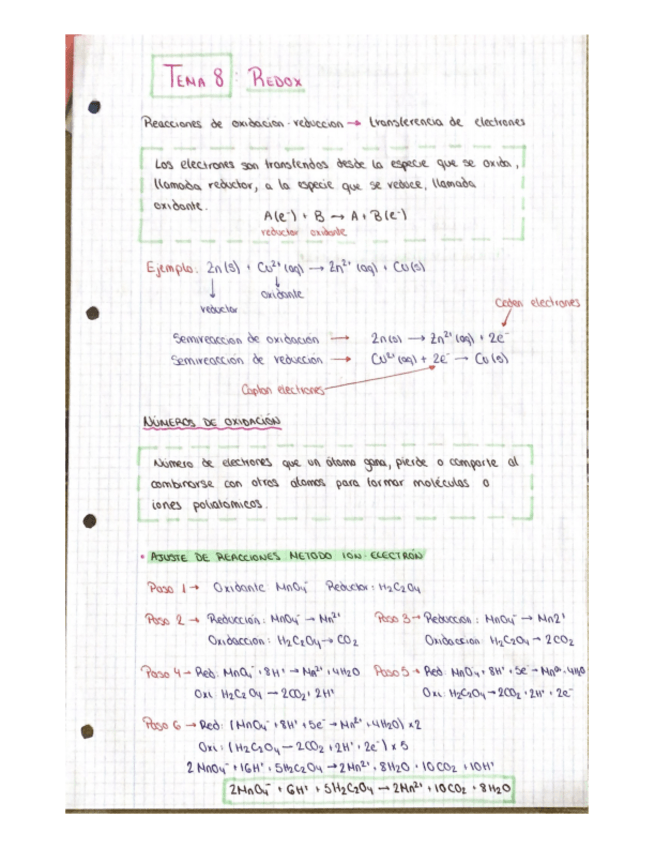 TEMA 8 : REDOX
Reacciones de oxidacion-reduccion → transferencia de electrones
Los electrones son transferidos desde la especie que se oxida,
llamada reductor, a la especie que se reduce, llamada
oxidante.
A(e⁻) + B → A + B(e⁻)
reductor oxidante
Ejemplo: Zn(s) + Cu²⁺(aq) → Zn²⁺(aq) + Cu(s)
oxidante
reductor
Ceden electrones
Semireaccion de oxidación → Zn(s) → Zn²⁺(aq) + 2e⁻
Semireaccion de reducción → Cu²⁺(aq) + 2e⁻ → Cu(s)
Captan electrones
NÚMEROS DE OXIDACIÓN
Número de electrones que un átomo gana, pierde o comparte al
combinarse con otros atomos para formar moléculas o
iones poliatomicos.
• AJUSTE DE REACCIONES METODO ION-ELECTRÓN
Paso 1 → Oxidante MnO₄⁻ Reductor: H₂C₂O₄
Paso 2 → Reducción: MnO₄⁻ → Mn²⁺ Paso 3 → Reduccion: MnO₄⁻ → Mn2⁺
Oxidaccion: H₂C₂O₄ → CO₂ Oxidaccion H₂C₂O₄ → 2CO₂
Paso 4 → Red: MnO₄⁻ + 8H⁺ → Mn²⁺ + 4H₂O Paso 5 → Red: MnO₄ + 8H⁺ + 5e⁻ → Mn²⁺ + 4H₂O
Oxi: H₂C₂O₄ → 2CO₂ + 2H⁺ Oxi: H₂C₂O₄ → 2CO₂ + 2H⁺ + 2e⁻
Paso 6 → Red: (MnO₄⁻ + 8H⁺ + 5e⁻ → Mn²⁺ + 4H₂O) x2
Oxi: (H₂C₂O₄ → 2CO₂ + 2H⁺ + 2e⁻) x 5
2 MnO₄⁻ + 16H⁺ + 5H₂C₂O₄ → 2 Mn²⁺ + 8H₂O + 10CO₂ + 10H⁺
2MnO₄⁻ + 6H⁺ + 5H₂C₂O₄ → 2Mn²⁺ + 10CO₂ + 8H₂O